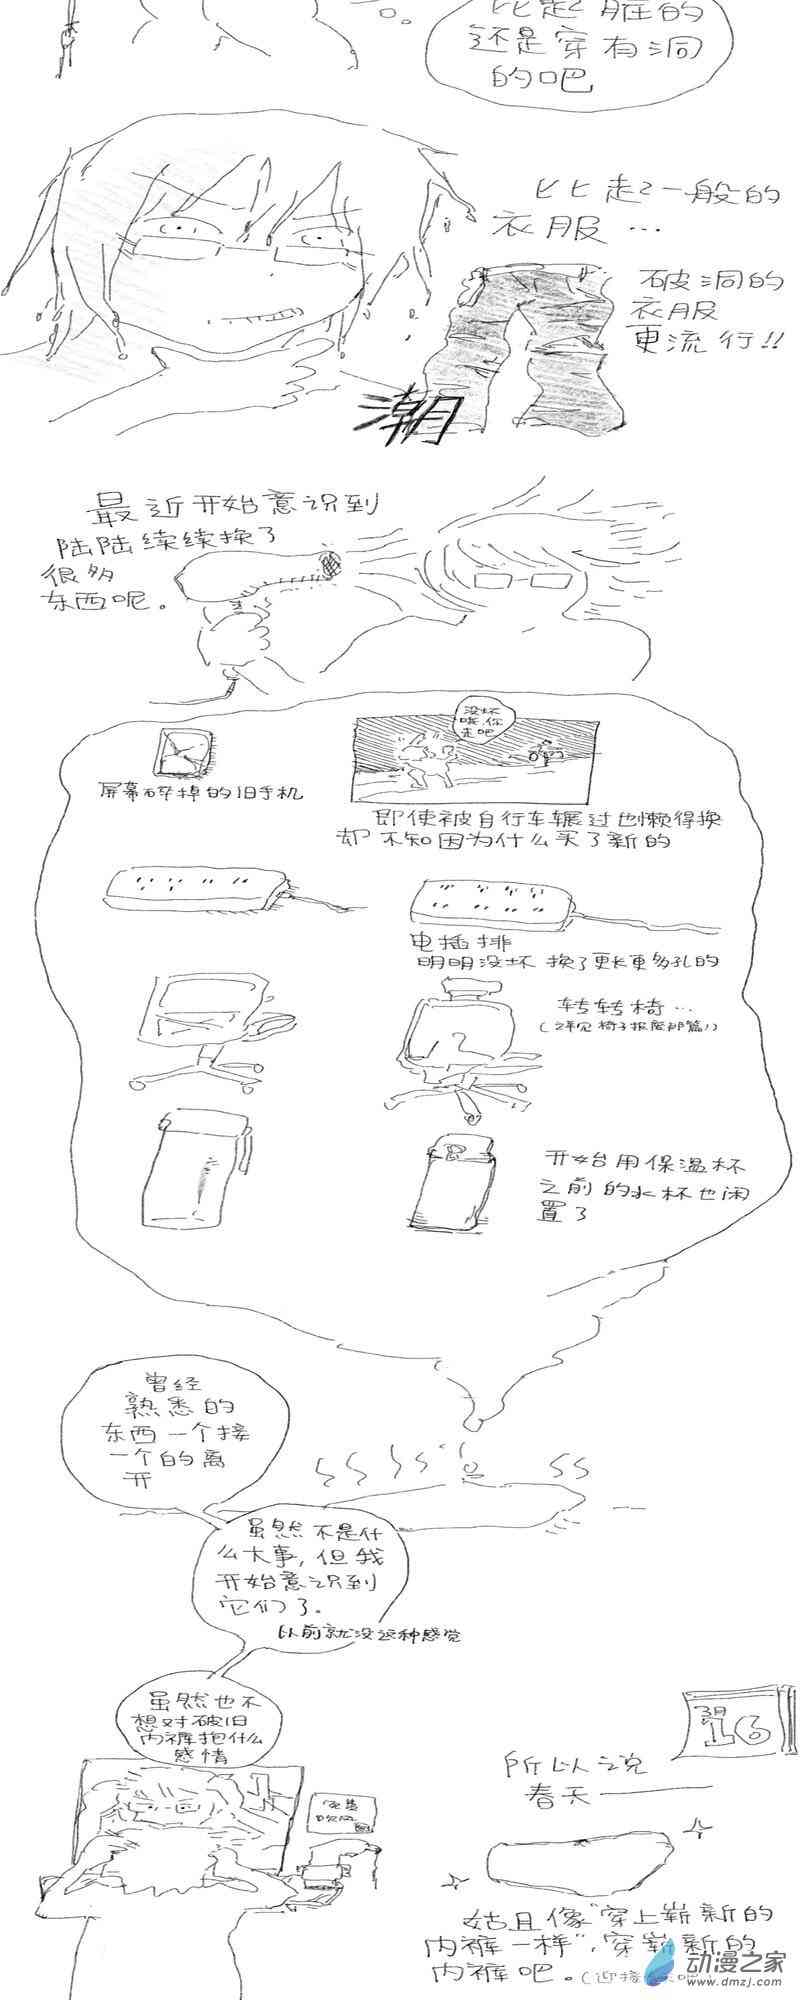 比起2脏的
还是穿有洞
的吧
比起2一般的
衣服…
破洞的
衣服
更流行!!
潮
最近开始意识到
陆陆续续换了
很多
东西呢。
没坏
哦,你
走吧
屏幕碎掉的旧手机
即使被自行车辗过也懒得换
却不知因为什么买了新的
电插排
明明没坏 换了更长更多孔的
转转椅…
(详见 椅子报废那篇!)
开始用保温杯
之前的水杯也闲
置了
曾经
熟悉的
东西一个接
一个的离
开
虽然不是什
么大事,但我
开始意识到
它们了。
以前就没这种感觉
虽然也不
想对破旧
内裤抱什么
感情
3月
16
所以之说
春天——
姑且像“穿上崭新的
内裤一样”,穿崭新的
内裤吧。
动漫之家
www.dmzj.com